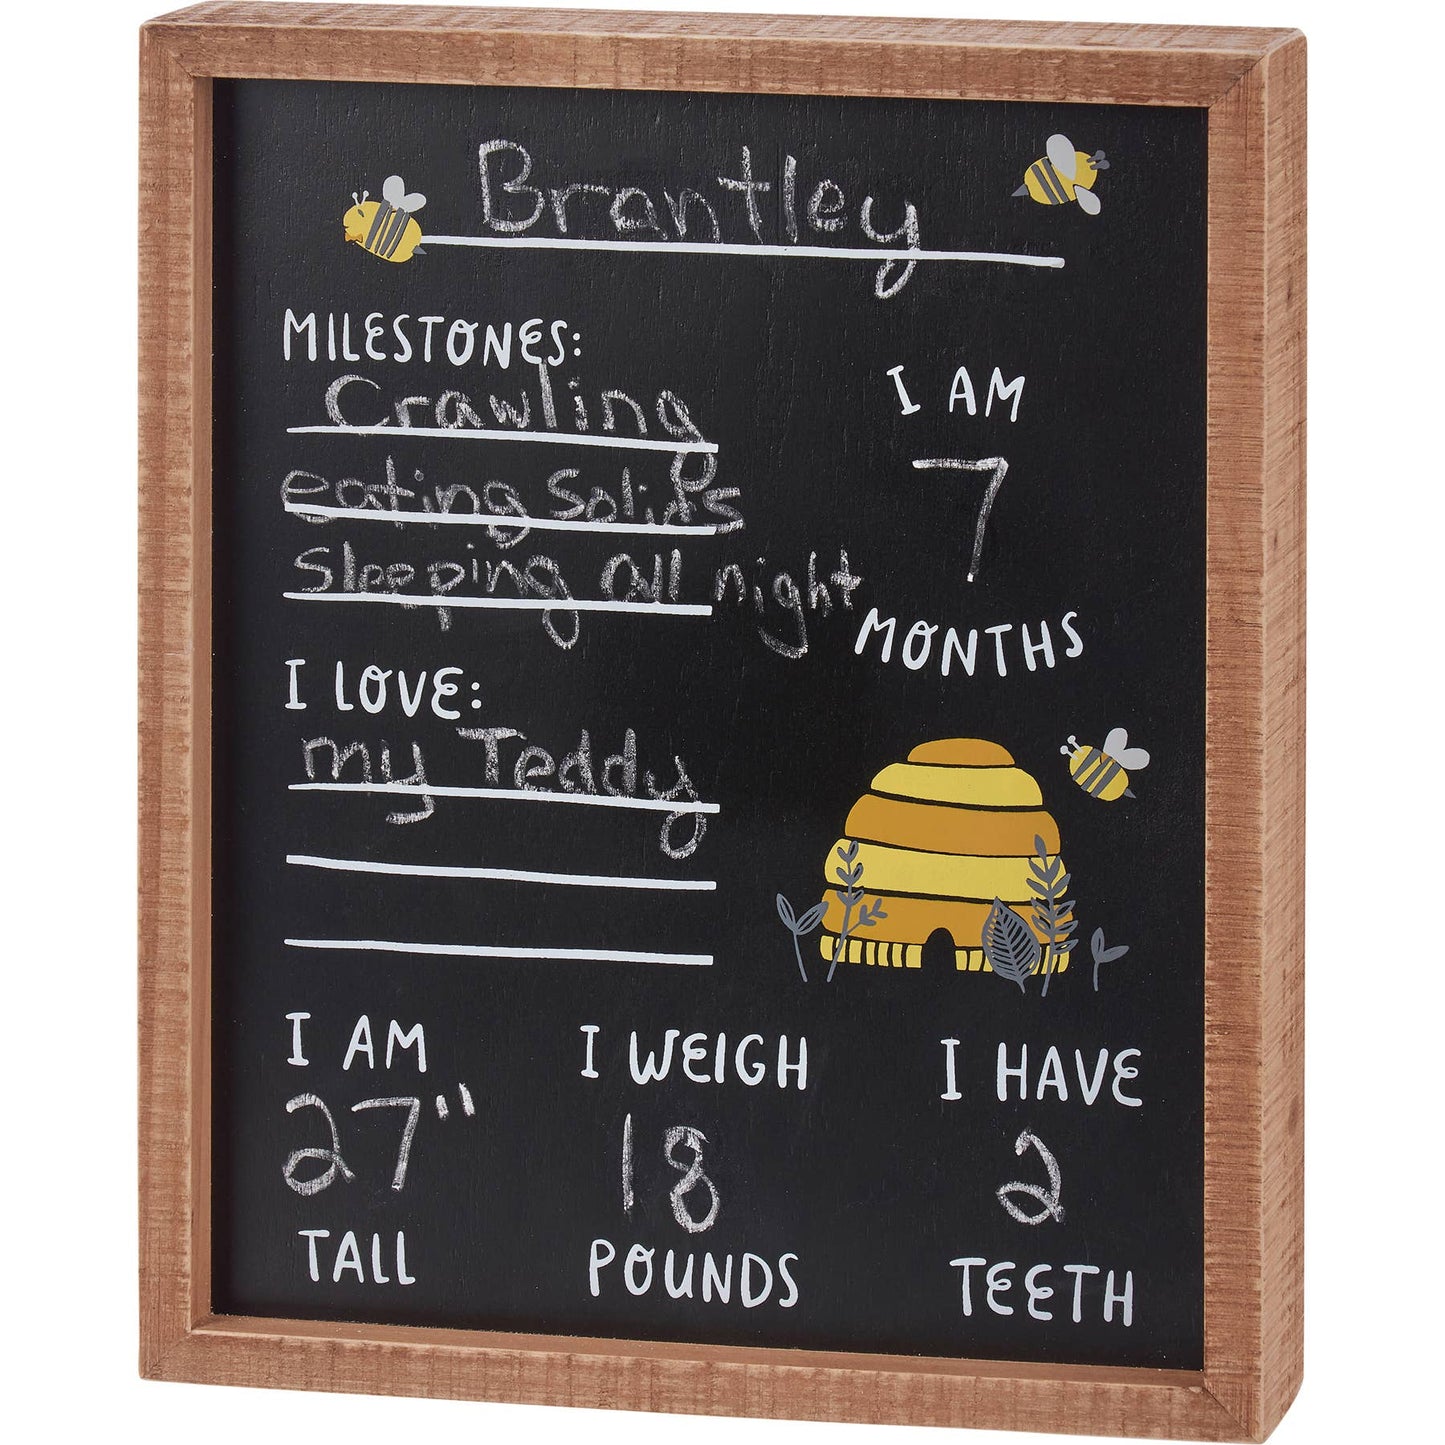 Brantley
MILESTONES:
Crawling
eating Solids
Sleeping all night
I AM
7
MONTHS
I LOVE:
my Teddy
I AM
27"
TALL
I WEIGH
18
POUNDS
I HAVE
2
TEETH